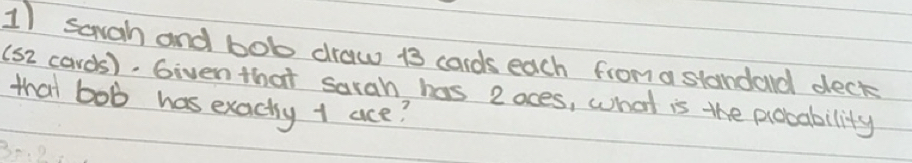 1) Sarah and bob draw 13 cards each from a standard deck
(52 cards). Given that Sarah has 2 aces, what is the probability
that bob has exactly 1 ace?